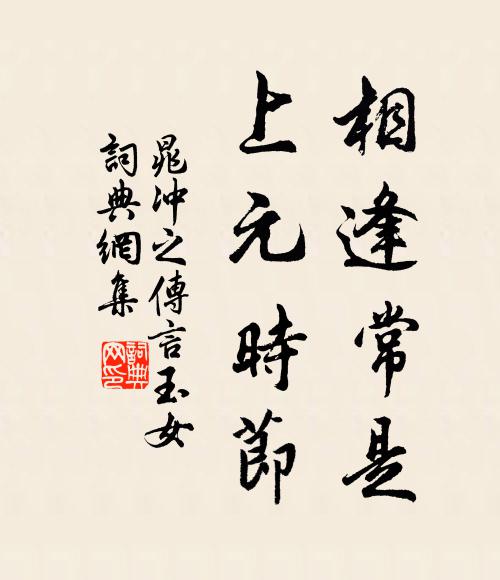 相逢常是
上元時節
晁沖之傳言玉女
詞典網集
詞典
网印